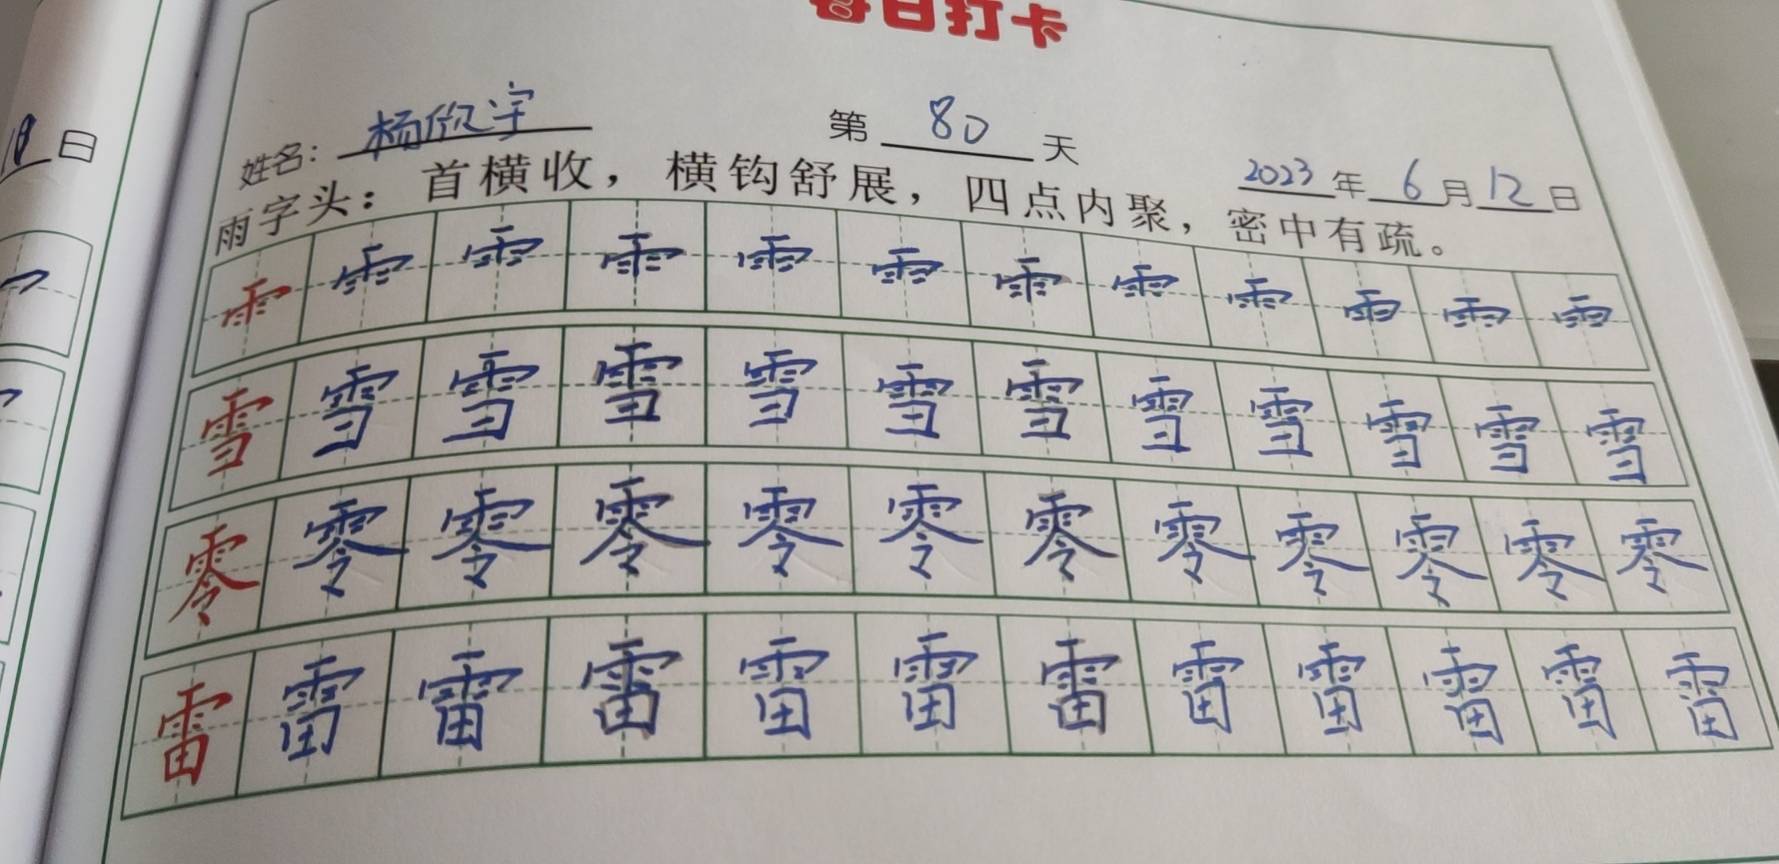 每日打卡
姓名：杨欣宇 第 80 天
2023 年 6 月 12 日
18 日
雨字头：首横收，横钩舒展，四点内聚，密中有疏。
⻗ ⻗ ⻗ ⻗ ⻗ ⻗ ⻗ ⻗ ⻗ ⻗ ⻗ ⻗
雪 雪 雪 雪 雪 雪 雪 雪 雪 雪 雪 雪
零 零 零 零 零 零 零 零 零 零 零 零
雷 雷 雷 雷 雷 雷 雷 雷 雷 雷 雷 雷